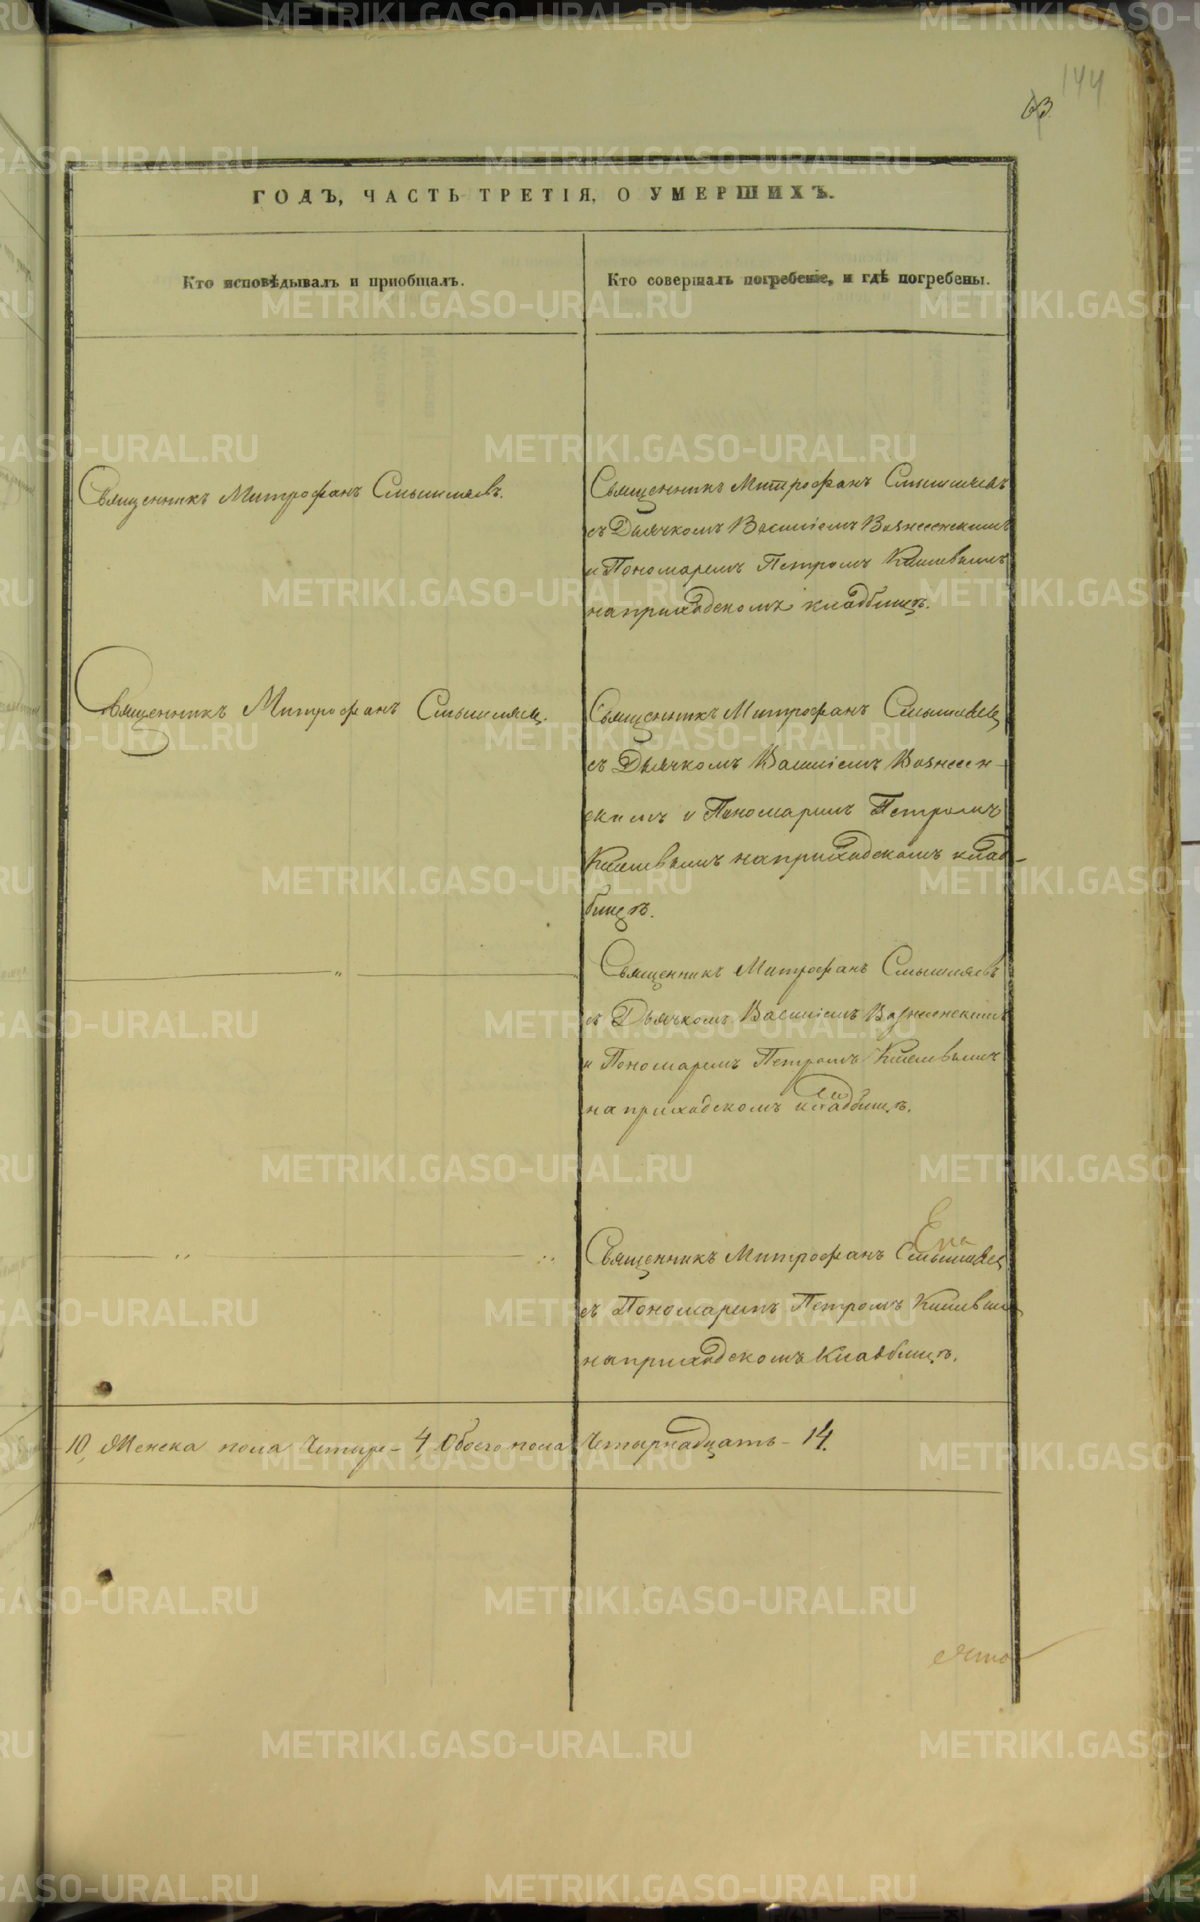 144
63
ГОДЪ, ЧАСТЬ ТРЕТІЯ, О УМЕРШИХЪ.
Кто исповѣдывалъ и пріобщалъ.
Кто совершалъ погребеніе, и гдѣ погребены.
Священникъ Митрофанъ Смышляевъ.
Священникъ Митрофанъ Смышляевъ
съ Дьячкомъ Василіемъ Вознесенскимъ
и Пономаремъ Петромъ
на приходскомъ кладбищѣ.
Священникъ Митрофанъ Смышляев.
Священникъ Митрофанъ Смышляев
съ Дьячкомъ Василіемъ Вознесен-
скимъ и Пономаримъ Петромъ
на приходскомъ клад-
бищѣ.
Священникъ Митрофанъ Смышляевъ
съ Дьячкомъ Василіемъ Вознесенскимъ
и Пономаремъ Петромъ
на приходскомъ кладбищѣ.
Священникъ Митрофанъ Смышляев
съ Пономаремъ Петромъ
на приходскомъ Кладбищѣ.
10, Женска пола Четыре - 4, Обоего пола Четырнадцать - 14.
METRIKI.GASO-URAL.RU